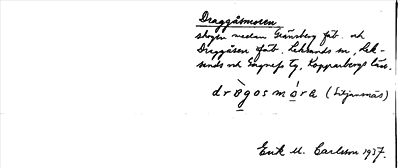 Draggåsmoren
skogen nedan Gränsberg fäb. och
Draggåsen fäb. Leksands sn, Lek-
sands och Gagnefs tg, Kopparbergs län.
drògosmóra (Siljansnäs)
Erik U. Carlsson 1937.